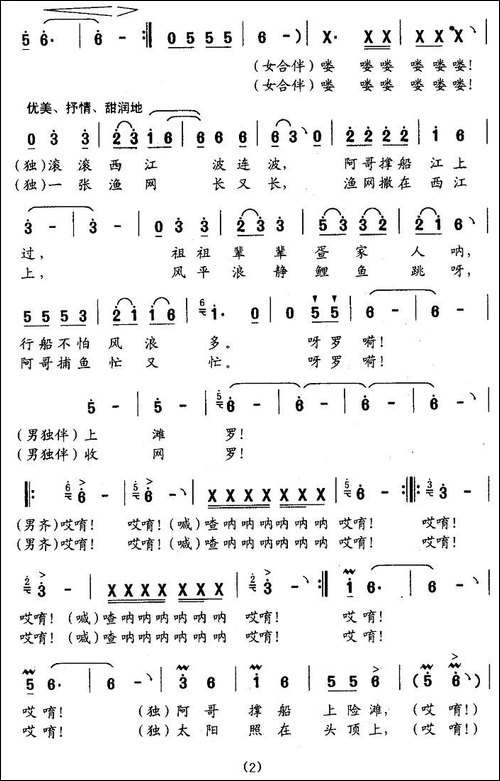 5 6· | 6 - :‖ 0 5 5 5 | 6 - ) | X· X X | X X X
(女合伴) 喽 喽喽 喽喽喽!
(女合伴) 喽 喽喽 喽喽喽!
优美、抒情、甜润地
0 3 3 | 2 3 1 6 | 6 6 6 | 6 3 0 | 2 2 2 2 | 1 6
(独)滚滚西江 波连波, 阿哥撑船江上
(独)一张渔网 长又长, 渔网撒在西江
3 - | 3 - | 0 3 0 3 | 2 3 2 1 | 5 3 3 2 | 2 1 6
过, 祖祖辈辈蛋家人呐,
上, 风平浪静鲤鱼跳呀,
5 5 5 3 | 2 1 1 6 | 6 1· 0 | 0 5 5 | 6 - | 6 -
行船不怕风浪多。 呀罗嗬!
阿哥捕鱼忙又忙。 呀罗嗬!
5 - | 5 - | 5 6 - | 6 - | 6 - | 6 -
(男独伴)上滩罗!
(男独伴)收网罗!
‖: 2 6 - | 5 6 - | X X X X X X | 5 6 - | 5 6 - :‖: 2 3 -
(男齐)哎唷! 哎唷!(喊)喳呐呐呐呐呐哎唷! 哎唷! 哎唷!
(男齐)哎唷! 哎唷!(喊)喳呐呐呐呐呐哎唷! 哎唷! 哎唷!
2 3 - | X X X X X X X | 2 3 - :‖ 1 6· | 6 -
哎唷!(喊)喳呐呐呐呐呐呐 哎唷! 哎唷!
哎唷!(喊)喳呐呐呐呐呐呐 哎唷! 哎唷!
5 6· | 6 - | 3 6 | 1 6 | 5 5 6 | (5 6 -)
哎唷! (独)阿哥撑船上险滩,(哎唷!)
哎唷! (独)太阳照在头顶上,(哎唷!)
(2)